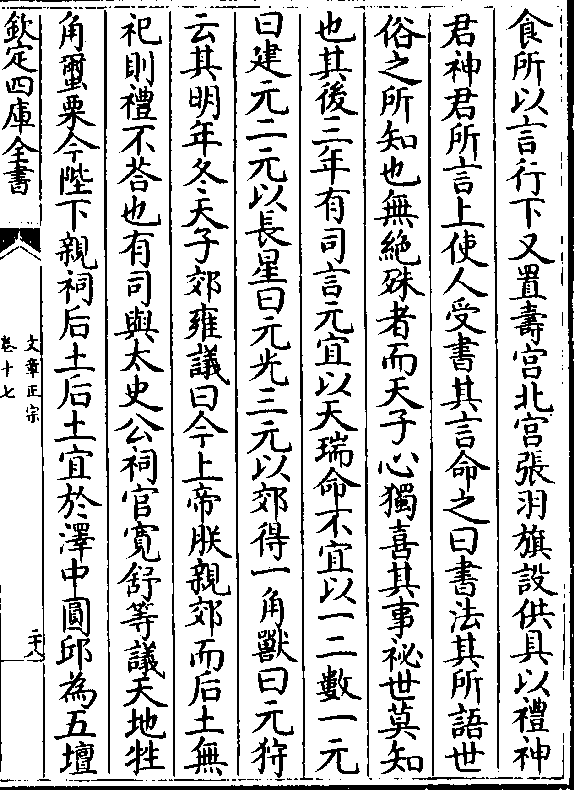 食所以言行下又置壽宮北宮張羽旗設供具以禮神
君神君所言上使人受書其言命之曰書法其所語世
俗之所知也無絶殊者而天子心獨喜其事祕世莫知
也其後三年有司言元宜以天瑞命不宜以一二數一元
曰建元二元以長星曰元光三元以郊得一角獸曰元狩
云其明年冬天子郊雍議曰今上帝朕親郊而后土無
祀則禮不荅也有司與太史公祠官寛舒等議天地牲
角蠒栗今陛下親祠后土后土宜於澤中圓邱為五壇
欽定四庫全書
文章正宗
卷十七
二十八